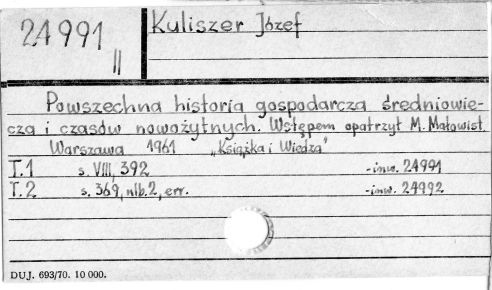 24991
II
Kuliszer Józef
Powszechna historia gospodarcza średniowie-
cza i czasów nowożytnych. Wstępem opatrzył M. Małowist.
Warszawa 1961 „Książka i Wiedza"
T.1 s. VIII, 392 -inw. 24991
T.2 s. 369, nlb. 2, err. -inw. 24992
DUJ. 693/70. 10 000.